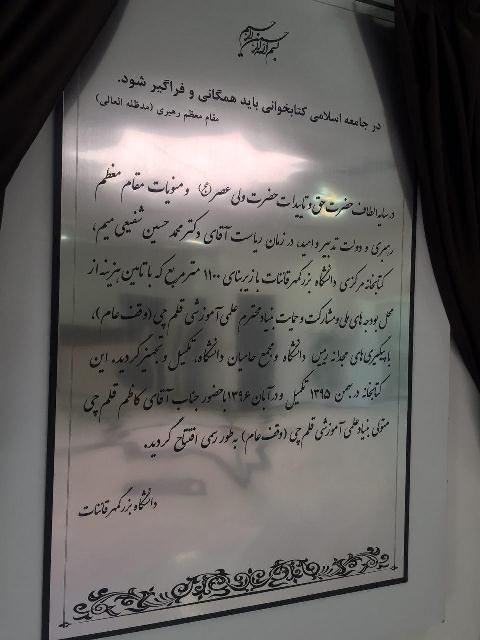 بسم الله الرحمن الرحیم
در جامعه اسلامی کتابخوانی باید همگانی و فراگیر شود.
مقام معظم رهبری (مدظله العالی)
در سایه الطاف حضرت حق و تاییدات حضرت ولی عصر (عج) و منویات مقام معظم
رهبری و دولت تدبیر و امید، در زمان ریاست آقای دکتر محمد حسین شفیعی میم،
کتابخانه مرکزی دانشگاه بزرگمهر قائنات با زیربنای ۱۱۰۰ متر مربع که با تامین هزینه از
محل بودجه های ملی و مشارکت و حمایت بنیاد محترم علمی آموزشی قلم چی (وقف عام)،
با پیگیری های مجدانه رییس دانشگاه و مجمع حامیان دانشگاه، تکمیل و تجهیز گردید. این
کتابخانه در بهمن ۱۳۹۵ تکمیل و در آبان ۱۳۹۶ با حضور جناب آقای کاظم قلم چی
متولی بنیاد علمی آموزشی قلم چی (وقف عام) به طور رسمی افتتاح گردید.
دانشگاه بزرگمهر قائنات